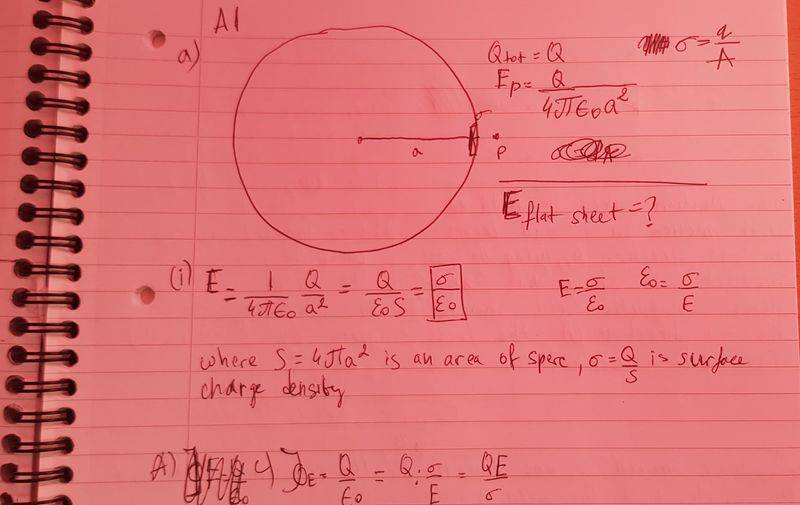 A1
a)
Q tot = Q
σ = q/A
E p = Q/4πε₀a²
σ
a
P
E flat sheet = ?
(i) E = 1/4πε₀ Q/a² = Q/ε₀S = σ/ε₀
E = σ/ε₀ ε₀ = σ/E
where S = 4πa² is an area of sperc, σ = Q/S is surface
charge density
E = Q/ε₀ = Q : σ/E = QE/σ